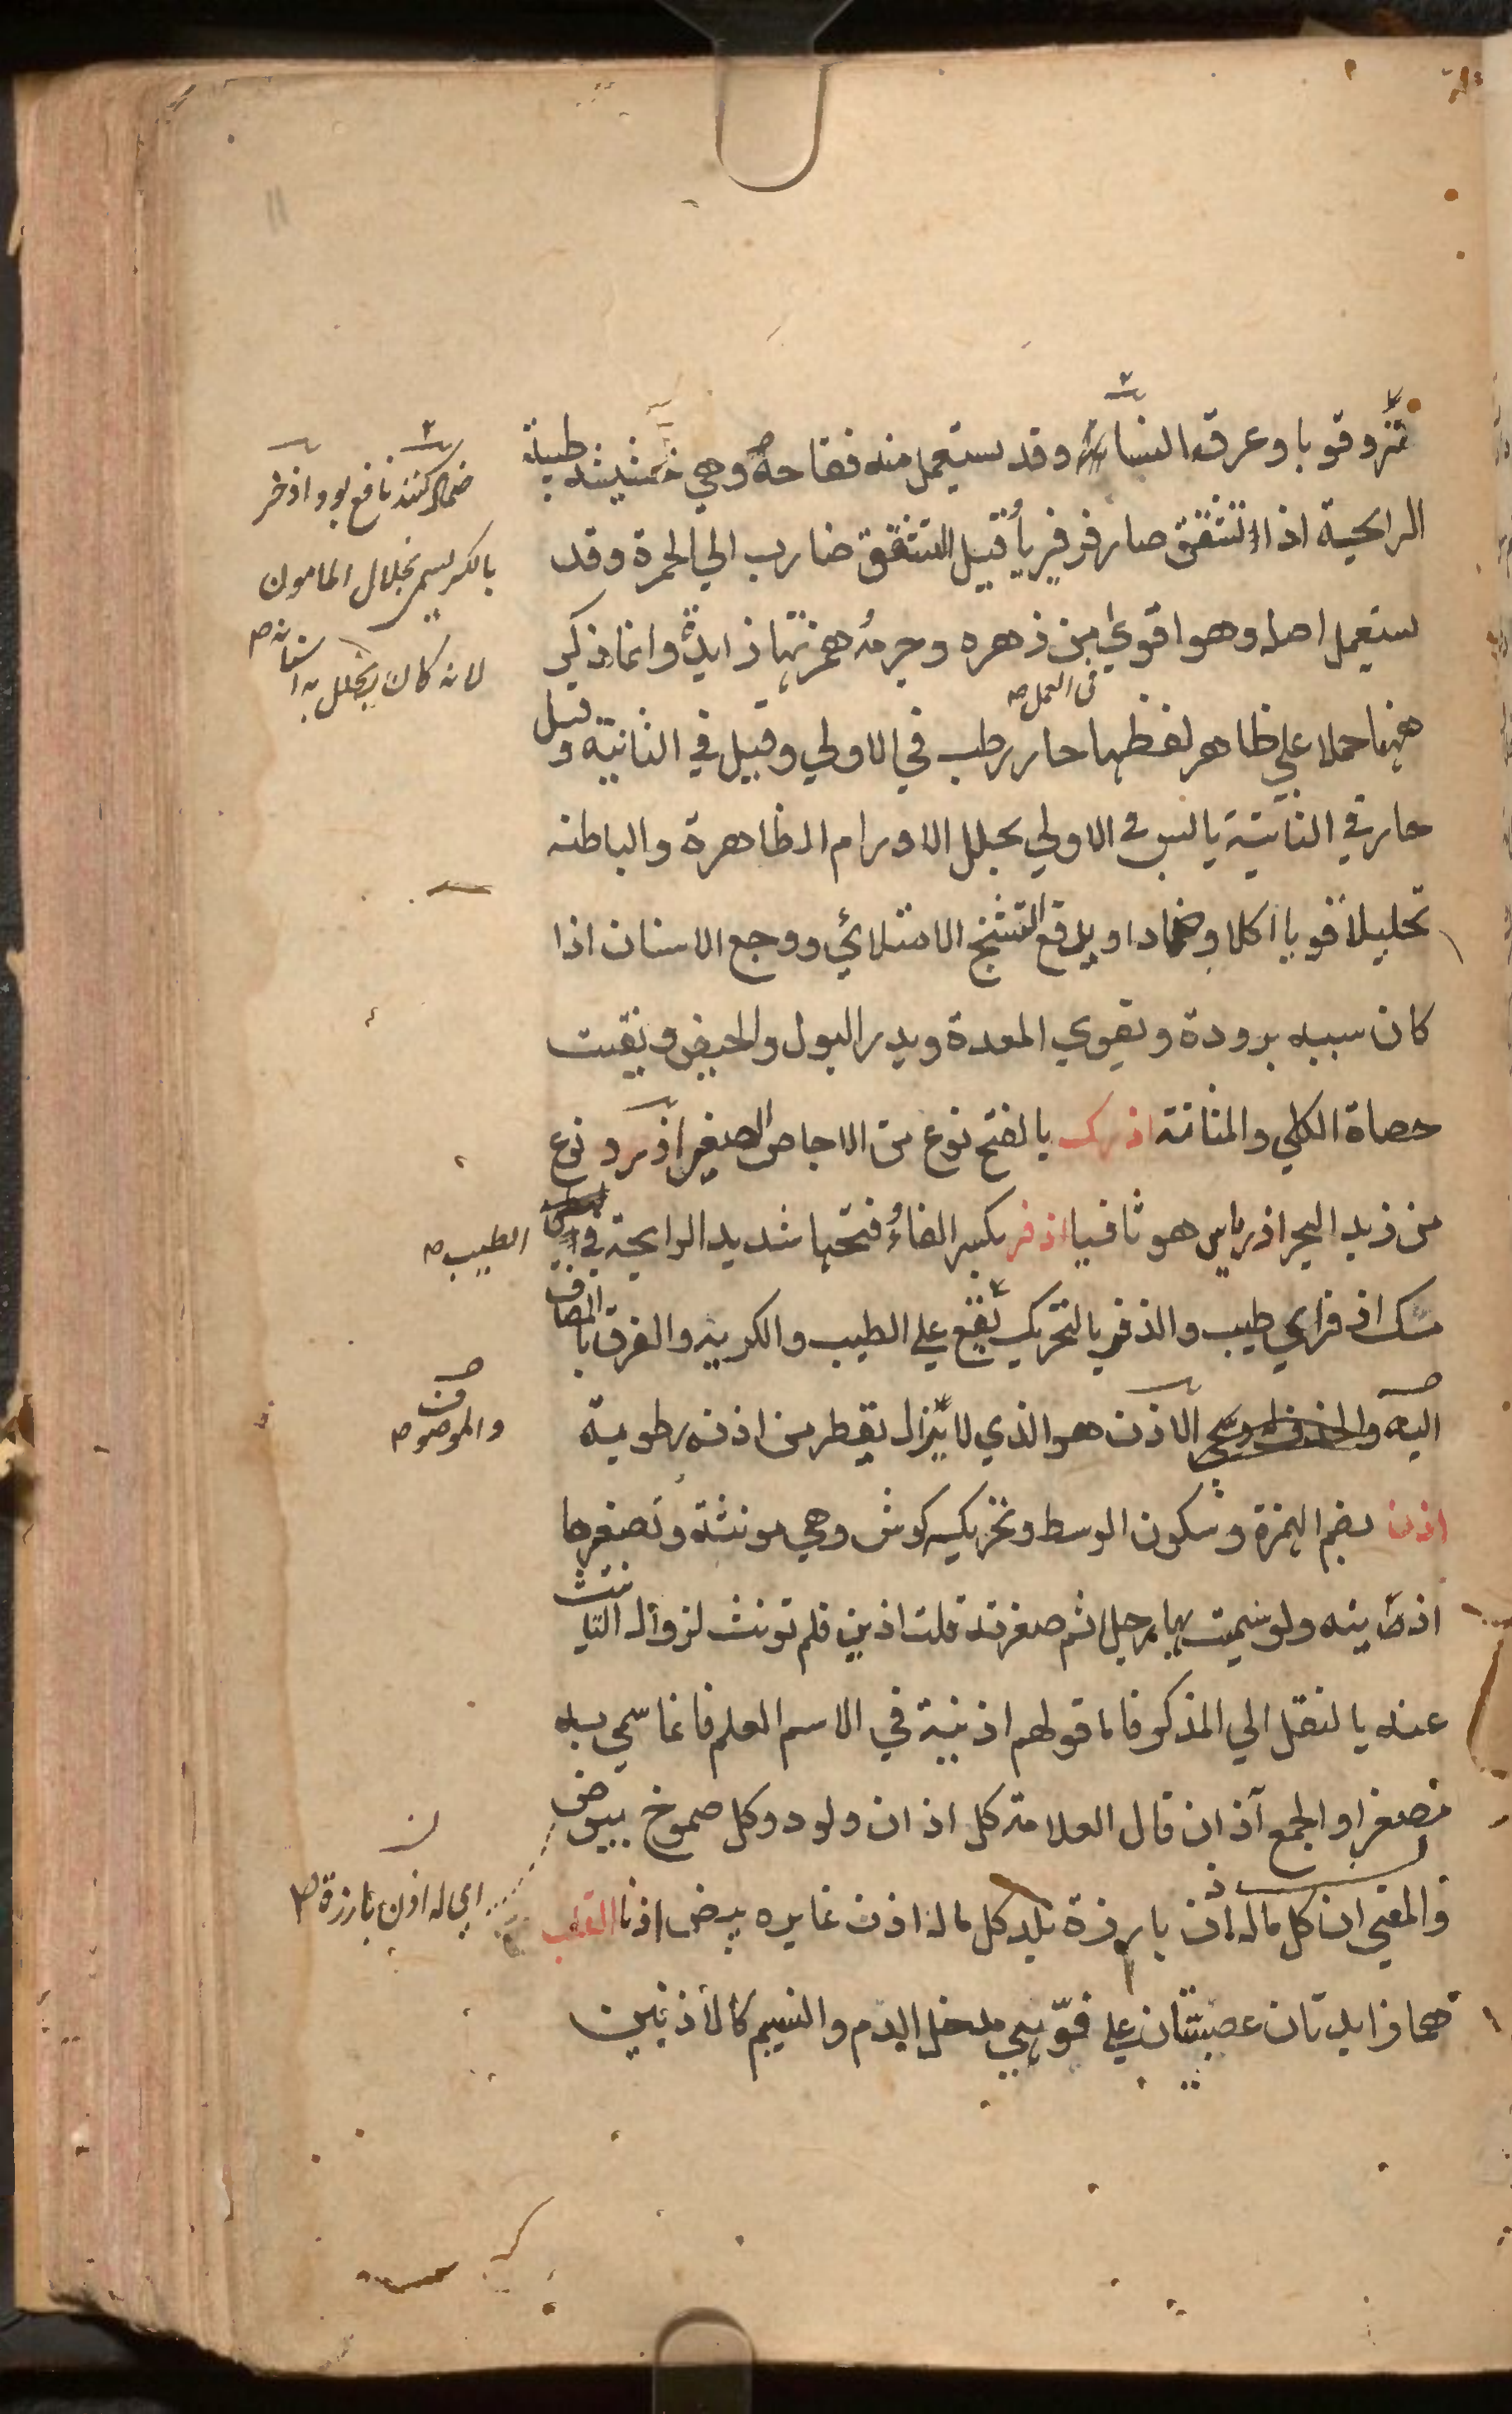 وقوبا وعرق النسا وقد يستعمل منه فقاحه وهي حشيشة طيبة
الرايحة اذا تشقق صار فرفيريا قبيل التشقق ضارب الي الحمرة وقد
يستعمل اصله وهو اقوي من زهره وجرمه همزتها زايدة وانما ذكر
في العمل صه
ههنا حملا علي ظاهر لفظها حار رطب في الاولي وقيل في الثانية وقيل
حار في الثانية يابس في الاولي يحلل الاورام الظاهرة والباطنه
تحليلا قويا اكلا وضمادا ويدفع التشنج الامتلائي ووجع الاسنان اذا
كان سببه برودة ويقوي المعدة ويدر البول والحيض ويفتت
حصاة الكلي والمثانة اذرك بالفتح نوع من الاجاص الصغير اذرد نوع
من زبد البحر اذرياس هو ثافسيا اذفر بكسر الفاء وفتحها شديد الرايحة في
مسك اذفر اي طيب والذفر بالتحريك يقع علي الطيب والكريه والفرق بالمضاف
اليه الاذن هو الذي لا يزال يقطر من اذنه رطوبة
اذن بضم الهمزة وسكون الوسط وتحريكه كوش وهي مونثة وتصغيرها
اذينه ولو سميت بها رجلا ثم صغرته قلت اذين فلم تونث لزوال التانيث
عنه بالنقل الي المذكر فاما قولهم اذينة في الاسم العلم فانما سمي به
مصغرا والجمع آذان قال العلامة كل اذان ولود وكل صموخ بيوض
والمعني ان كل ماله اذن بارزة يلد كل ماله اذن غايره يبيض اذنا القلب
هما زايدتان عصبيتان علي فوهتي مدخل الدم والنسيم كالاذنين
ضماد كنند نافع بود واذخر
بالكسر يسمي بخلال المامون
لانه كان يخلل به اسنانه صه
الطيب صه
والموصوف صه
اي له اذن بارزة صه